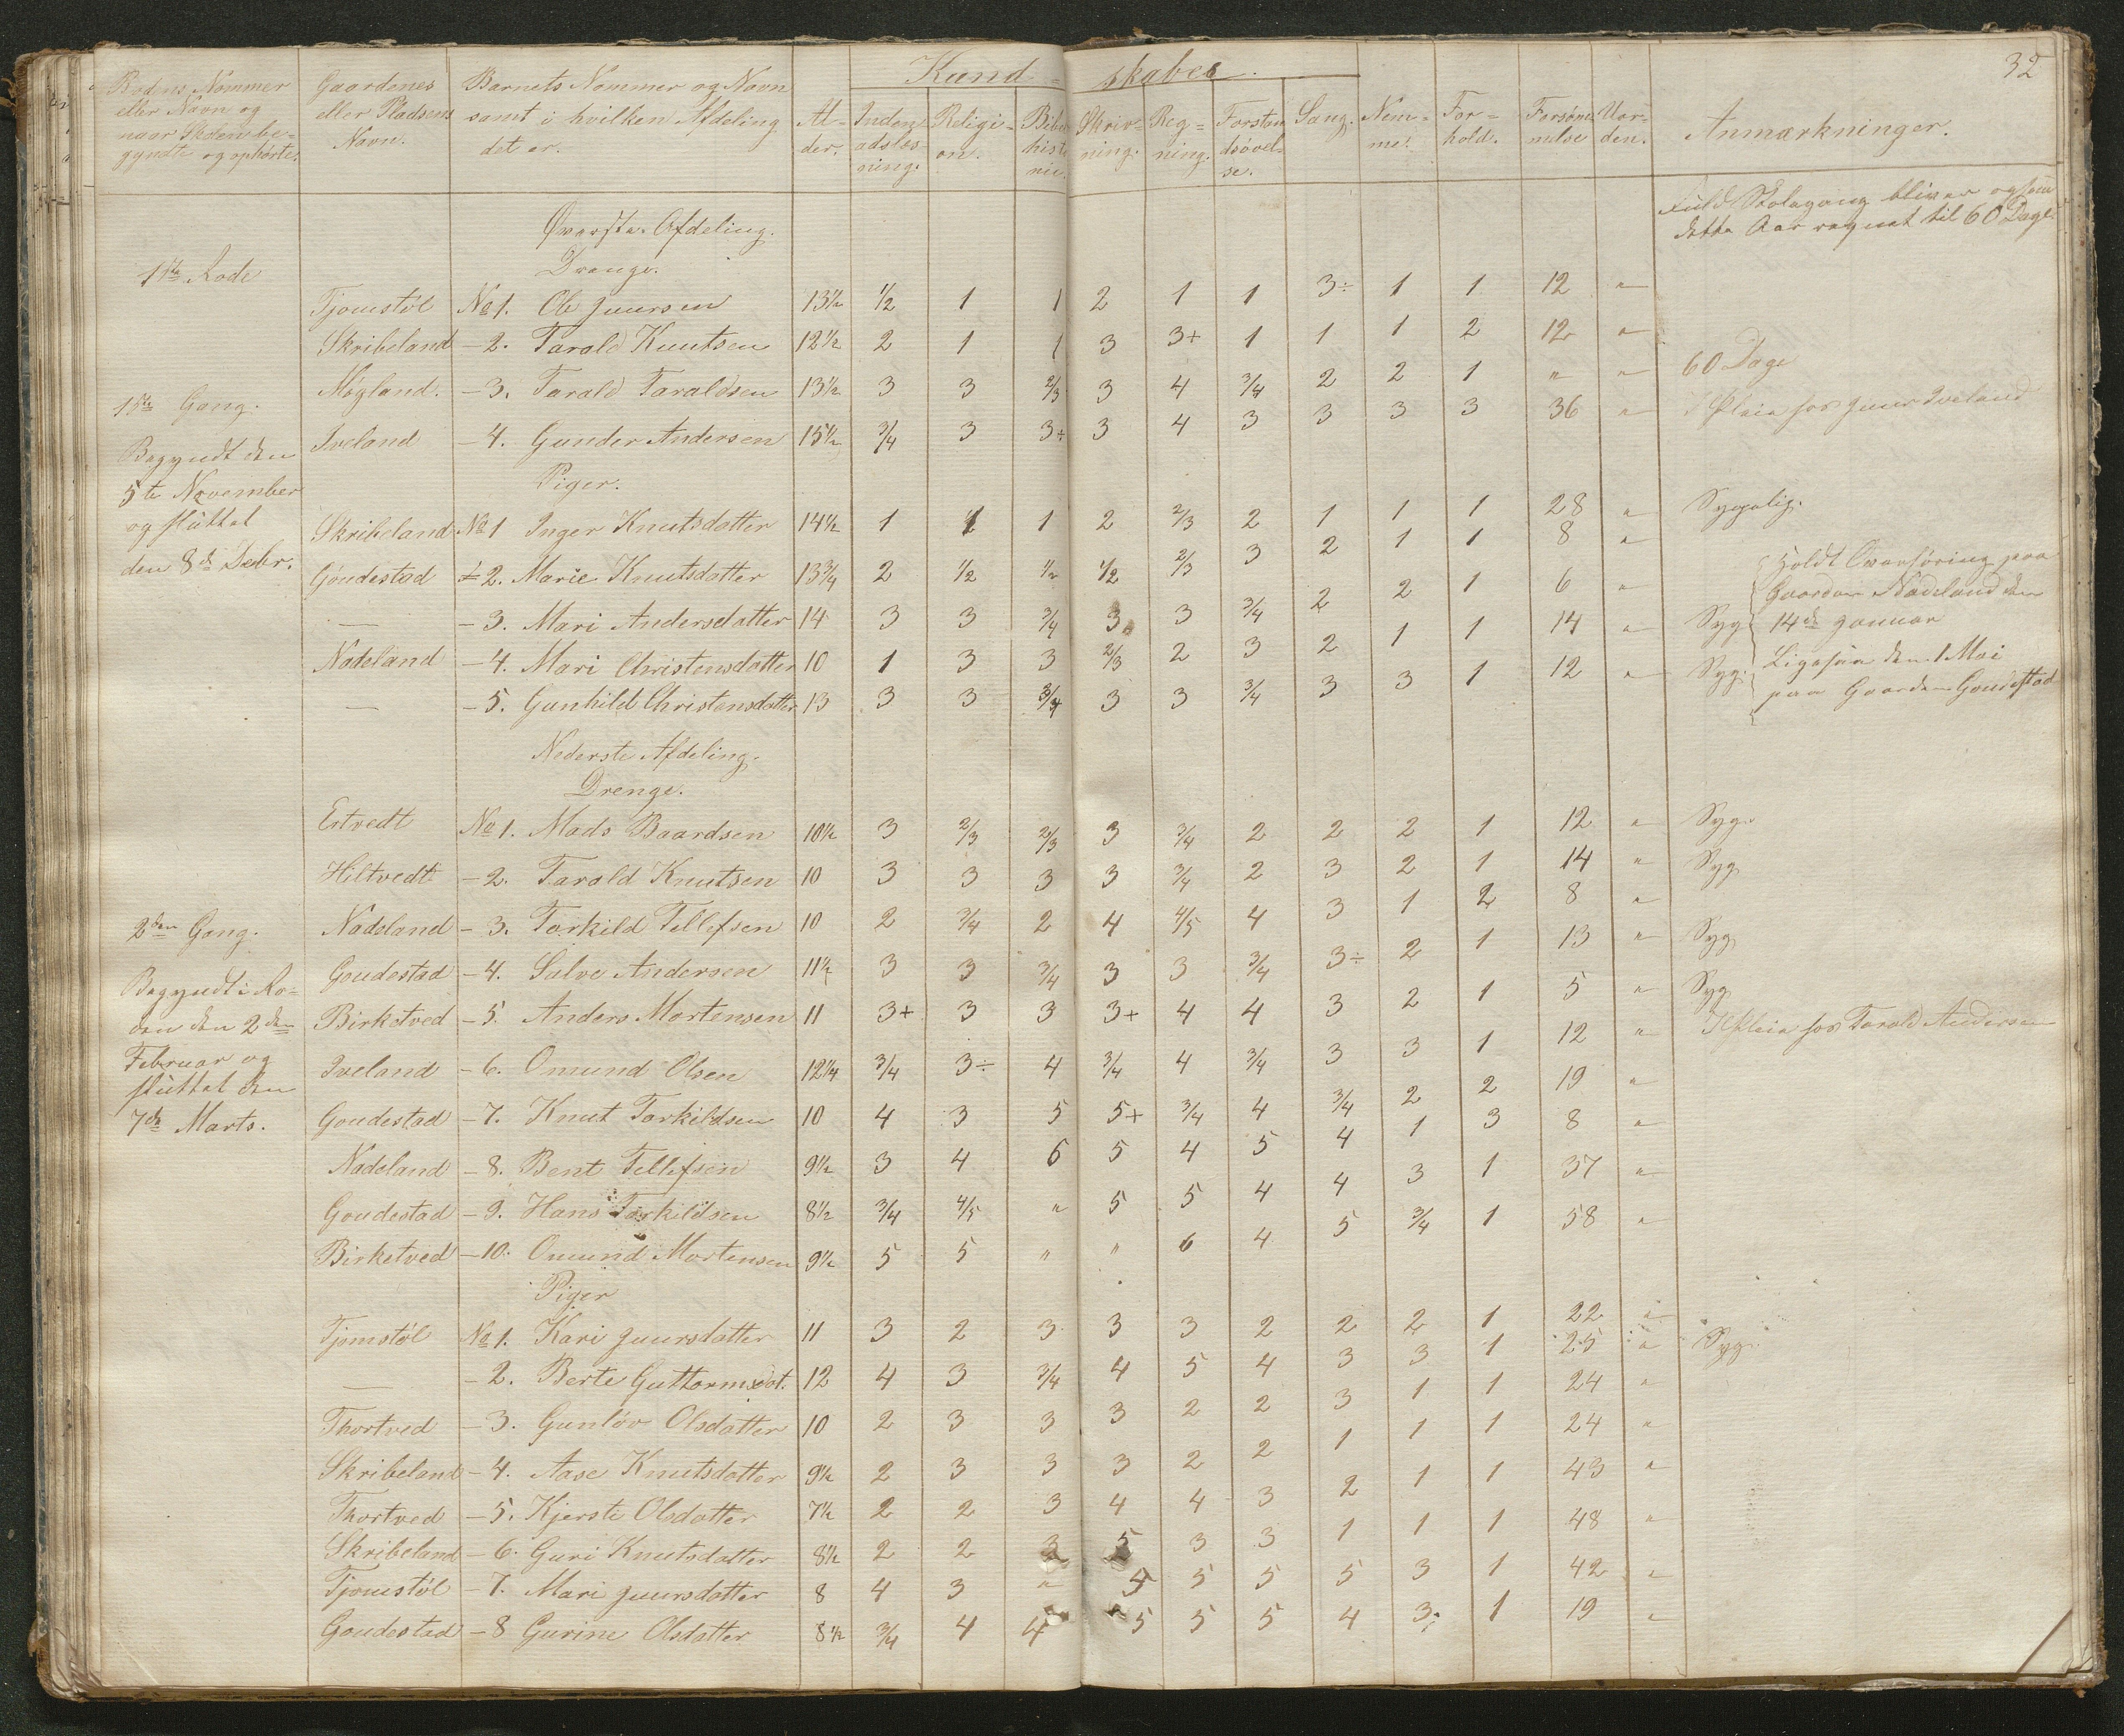 32
Kund- skaber.
Rodens Nommer eller Navn og naar Skolen be-gyndte og ophørte. Gaardenes eller Pladsens Navn. Barnets Nommer og Navn samt i hvilken Afdeling det er. Al-der. Inden-adslæs-ning. Religi-on. Bibel histo rie. Skriv-ning. Reg-ning. Forstan dsøvel-se. Sang. Nem-me. For-hold. Forsøm melse Uor-den. Anmærkninger.
Fuld Skolegang bliver ogsaa
dette Aar regnet til 60 Dage.
Øverste Afdeling.
1ste Rode
Drenge.
Tjomstøl No 1. Ole Juursen 13½ ½ 1 1 2 1 1 3÷ 1 1 12 "
Skribeland - 2. Tarald Knutsen 12½ 2 1 1 3 3+ 1 1 1 2 12 "
Møgland. - 3. Tarald Taraldsen 13½ 3 3 2/3 3 4 3/4 2 2 1 " " 60 Dage
1ste Gang.
Iveland - 4. Gunder Andersen 15½ 3/4 3 3+ 3 4 3 3 3 3 36 " I Pleie hos Juur Iveland
Begyndt den
5te November
og sluttet
den 8de Decbr.
Piger.
Skribeland No 1 Inger Knutsdatter 14½ 1 1 1 2 2/3 2 1 1 1 28 " Sygelig.
Goudestad - 2. Marie Knutsdatter 13¾ 2 ½ ½ ½ 2/3 3 2 1 1 8 "
— - 3. Mari Andersdatter 14 3 3 3/4 3 3 3/4 2 2 1 6 "
Nadeland - 4. Mari Christensdatter 10 1 3 3 2/3 2 3 2 1 1 14 " Syg
— - 5. Gunhild Christensdatter 13 3 3 3/4 3 3 3/4 3 3 1 12 " Syg.
Holdt Overhøring paa
Gaarden Nadeland den
14de Januar
Ligesaa den 1 Mai
paa Gaarden Goudestad
Nederste Afdeling.
Drenge.
Ertvedt No 1. Mads Baardsen 10½ 3 2/3 2/3 3 3/4 2 2 2 1 12 " Syg.
Hiltvedt - 2. Tarald Knutsen 10 3 3 3 3 3/4 2 3 2 1 14 " Syg
2den Gang.
Nadeland - 3. Torkild Tellefsen 10 2 3/4 2 4 4/5 4 3 1 2 8 "
Goudestad - 4. Salve Andersen 11½ 3 3 3/4 3 3 3/4 3÷ 2 1 13 " Syg
Begyndt i Ro-
den den 2den
Februar og
sluttet den
7de Marts.
Birketved - 5. Anders Mortensen 11 3+ 3 3 3+ 4 4 3 2 1 5 " Syg
Iveland - 6. Omund Olsen 12¼ 3/4 3÷ 4 3/4 4 3/4 3 3 1 12 " I Pleie hos Tarald Andersen
Goudestad - 7. Knut Torkildsen 10 4 3 5 5+ 3/4 4 3/4 2 2 19 "
Nadeland - 8. Bent Tellefsen 9½ 3 4 6 5 4 5 4 1 3 8 "
Goudestad - 9. Hans Torkildsen 8½ 3/4 4/5 " 5 5 4 4 3 1 37 "
Birketved - 10. Omund Mortensen 9½ 5 5 " " 6 4 5 3/4 1 58 "
Piger
Tjomstøl No 1. Kari Juursdatter 11 3 2 3 3 3 2 2 2 1 22 "
— - 2. Berte Guttormsdat. 12 4 3 3/4 4 5 4 3 3 1 25 " Syg.
Thortved - 3. Gunløv Olsdatter 10 2 3 3 3 2 2 3 1 1 24 "
Skribeland - 4. Aase Knutsdatter 9½ 2 3 3 3 2 2 1 1 1 24 "
Thortved - 5. Kjersti Olsdatter 7½ 2 2 3 4 4 3 2 1 1 43 "
Skribeland - 6. Guri Knutsdatter 8½ 2 2 3 5 3 3 1 1 1 48 "
Tjomstøl - 7. Mari Juursdatter 8 4 3 " 5 5 5 5 3 1 42 "
Goudestad - 8 Gurine Olsdatter 8½ 3/4 4 4 5 5 5 4 3 1 19 "